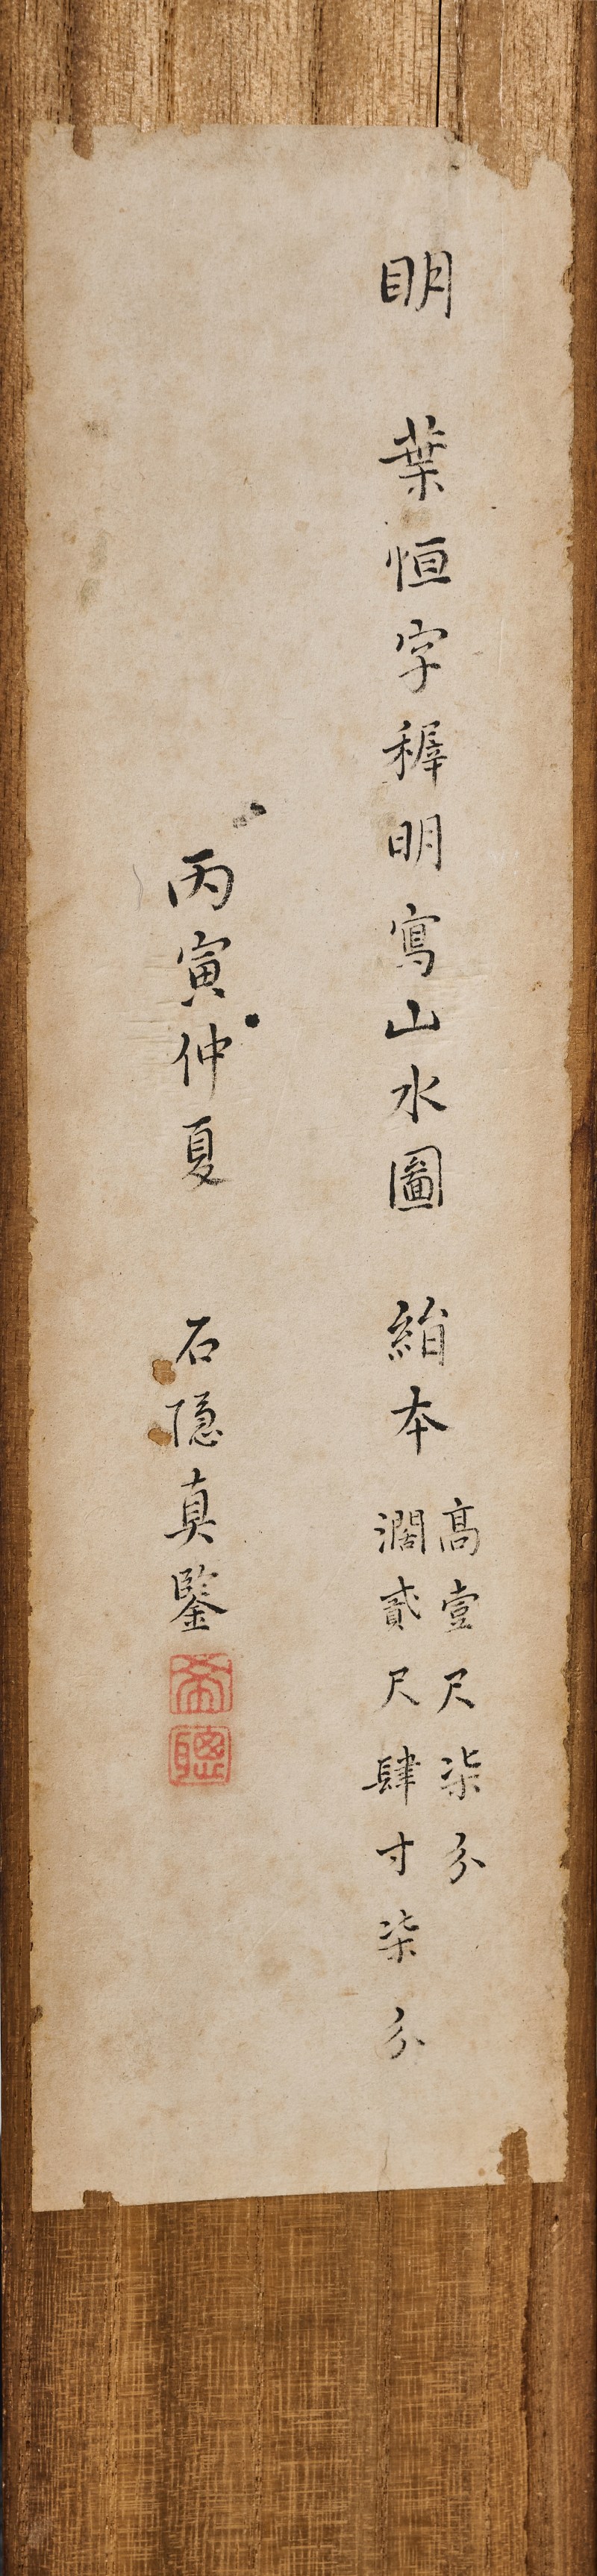 眀 葉恒字稺明寫山水圖 絹本
高壹尺柒分
濶貳尺肆寸柒分
丙寅仲夏 石隐真鑒
聰